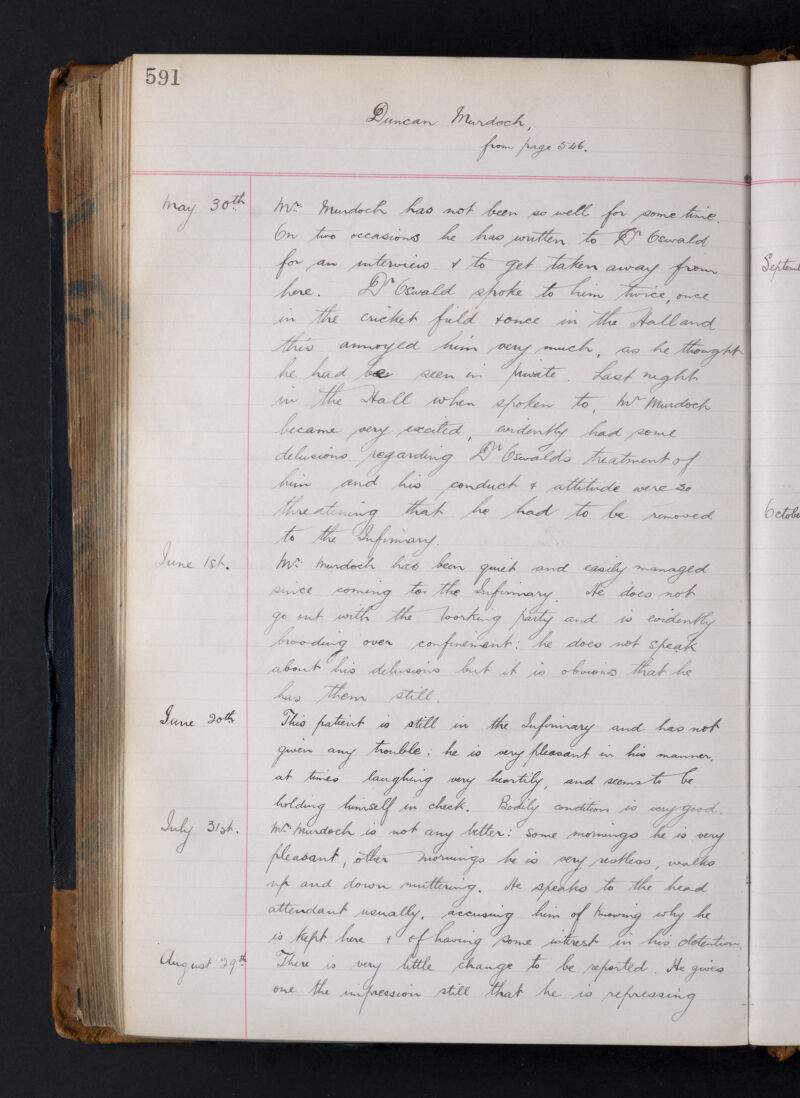 591
Duncan Murdoch,
from page 546.
May 30th Mr. Murdoch has not been so well for some time.
On two occasions he has written to Dr Oswald
for an interview & to get taken away from
here. Dr Oswald spoke to him twice, once
in the cricket field & once in the Hall and
this annoyed him very much, as he thought
he had be seen in private. Last night
in the Hall when spoken to, Mr Murdoch
became very excited, evidently had some
delusions regarding Dr Oswald's treatment of
him and his conduct & attitude were so
threatening that he had to be removed
to the Infirmary.
June 1st. Mr. Murdoch has been quiet and easily managed
since coming to the Infirmary. He does not
go out with the working party and is evidently
brooding over confinement: he does not speak
about his delusions but it is obvious that he
has them still.
June 20th This patient is still in the Infirmary and has not
given any trouble: he is very pleasant in his manner,
at times laughing very heartily, and seems to be
holding himself in check. Bodily condition is very good.
July 31st. Mr. Murdoch is not any better: some mornings he is very
pleasant, other mornings he is very restless, walks
up and down muttering. He speaks to the head
attendant usually, accusing him of knowing why he
is kept here & of having some interest in his detention.
August 29th There is very little change to be reported. He gives
one the impression still that he is repressing
Septemb
Octobe